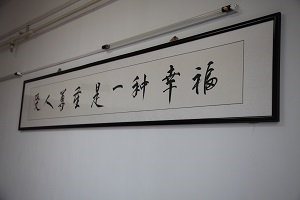 受人尊重是一种幸福